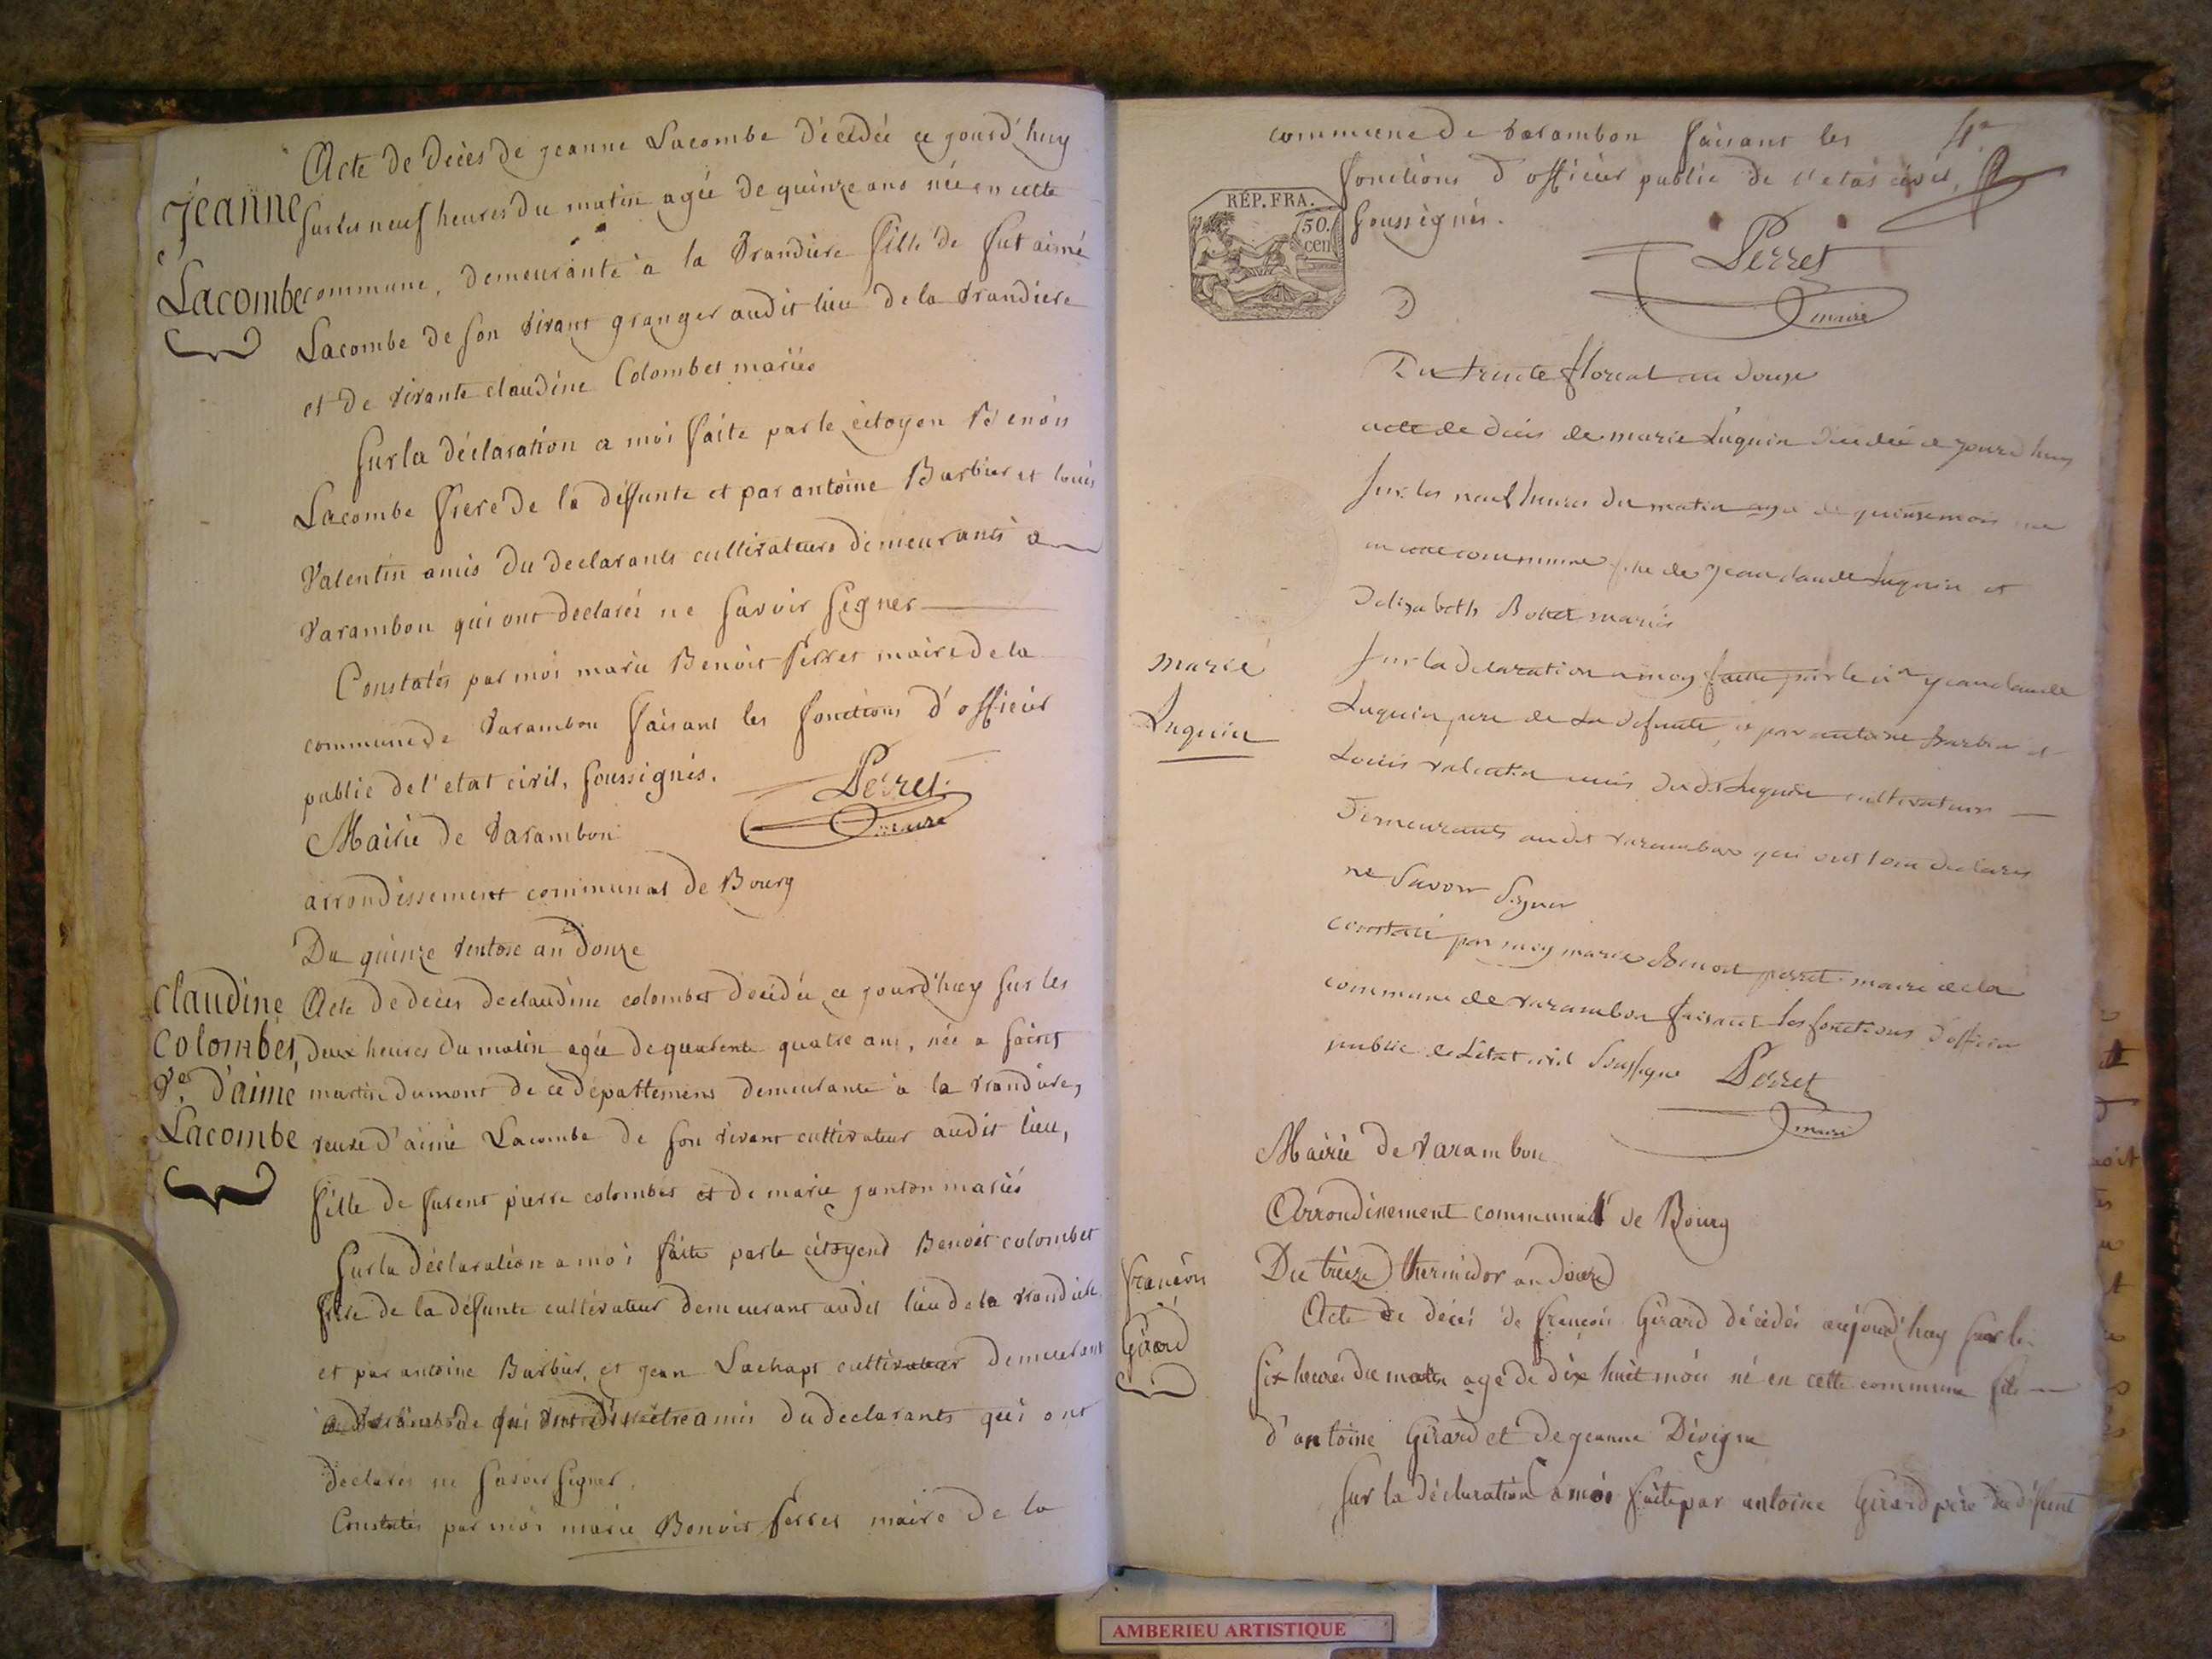 Acte de décès de jeanne Lacombe décédée ce jourd'huy
Jeanne
sur les neuf heures du matin agée de quinze ans née en cette
Lacombe
commune, demeurante à la Vrandiere fille de fut aimé
Lacombe de son vivant granger audit lieu de la vrandiere
et de vivante claudine Colombet mariés
Sur la déclaration a moi faite par le citoyen Benoit
Lacombe frere de la défunte et par antoine Barbier et louis
Valentin amis du declarants cultivateurs demeurants a
Varambon qui ont declarés ne savoir signer
Constatés par moi marie Benoit Perret maire de la
commune de Varambon faisant les fonctions d'officier
public de l'etat civil, soussignés.
Perret
maire
Mairie de Varambon
arrondissement communal de Bourg
Du quinze ventose an douze
Claudine
Colombet,
Ve. d'aimé
Lacombe
Acte de decès de claudine colombet décédée ce jourd'huy sur les
deux heures du matin agée de quarente quatre ans, née a saint
martin dumont de ce departement demeurante à la vrandiere,
veuve d'aimé Lacombe de son vivant cultivateur audit lieu,
fille de furent pierre colombet et de marie mariés
Sur la déclaration a moi faite par le citoyend Benoit colombet
frere de la défunte cultivateur demeurant audit lieu de la vrandiere
et par antoine Barbier, et jean cultivateur demeurant
qui ont dit être amis du declarants qui ont
declarés ne savoir signer.
Constatés par moi marie Benoit Perret maire de la
commune de Varambon faisant les
4e
fonctions d'officier public de l'etat civil,
soussignés.
RÉP. FRA.
50.
cen
Perret
maire
Du trente floreal an douze
acte de décès de marie Luquin décédée ce jourd'huy
sur les neuf heures du matin agé de quinse mois né
en cette commune fille de jean claude Luquin et
d'elizabeth Bollet mariés
marie
Luquin
sur la declaration a moy faitte par le cn jean claude
Luquin, pere de la defunte, et par antoine barbier et
Louis valentin amis dudt Luquin cultivateurs
demeurants audit varambon qui ont tous declarés
ne savoir signer
constaté par moy marie Benoit perret maire de la
commune de varambon faisant les fonctions d'officier
public de l'état civil soussigné
Perret
maire
Mairie de varambon
Arrondissement communal de Bourg
Du treize thermidor an douze
françois
Girard
Acte de décès de françois Girard décédé aujourd'huy sur les
six heures du matin agé de dix huit mois né en cette commune fils
d'antoine Girard et de jeanne Dévigne
sur la déclaration a moi faite par antoine Girard père du défunt
AMBERIEU ARTISTIQUE